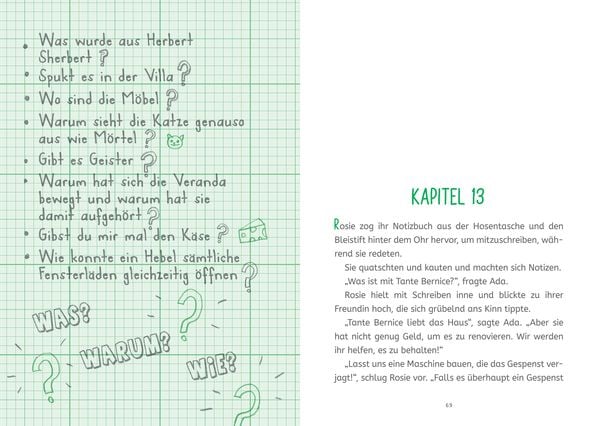 • Was wurde aus Herbert
Sherbert?
• Spukt es in der Villa?
• Wo sind die Möbel?
• Warum sieht die Katze genauso
aus wie Mörtel?
• Gibt es Geister?
• Warum hat sich die Veranda
bewegt und warum hat sie
damit aufgehört?
• Gibst du mir mal den Käse?
• Wie konnte ein Hebel sämtliche
Fensterläden gleichzeitig öffnen?
WAS?
WARUM?
WIE?
?
?
?
KAPITEL 13
Rosie zog ihr Notizbuch aus der Hosentasche und den
Bleistift hinter dem Ohr hervor, um mitzuschreiben, wäh-
rend sie redeten.
Sie quatschten und kauten und machten sich Notizen.
„Was ist mit Tante Bernice?“, fragte Ada.
Rosie hielt mit Schreiben inne und blickte zu ihrer
Freundin hoch, die sich grübelnd ans Kinn tippte.
„Tante Bernice liebt das Haus“, sagte Ada. „Aber sie
hat nicht genug Geld, um es zu renovieren. Wir werden
ihr helfen, es zu behalten!“
„Lasst uns eine Maschine bauen, die das Gespenst ver-
jagt!“, schlug Rosie vor. „Falls es überhaupt ein Gespenst
69